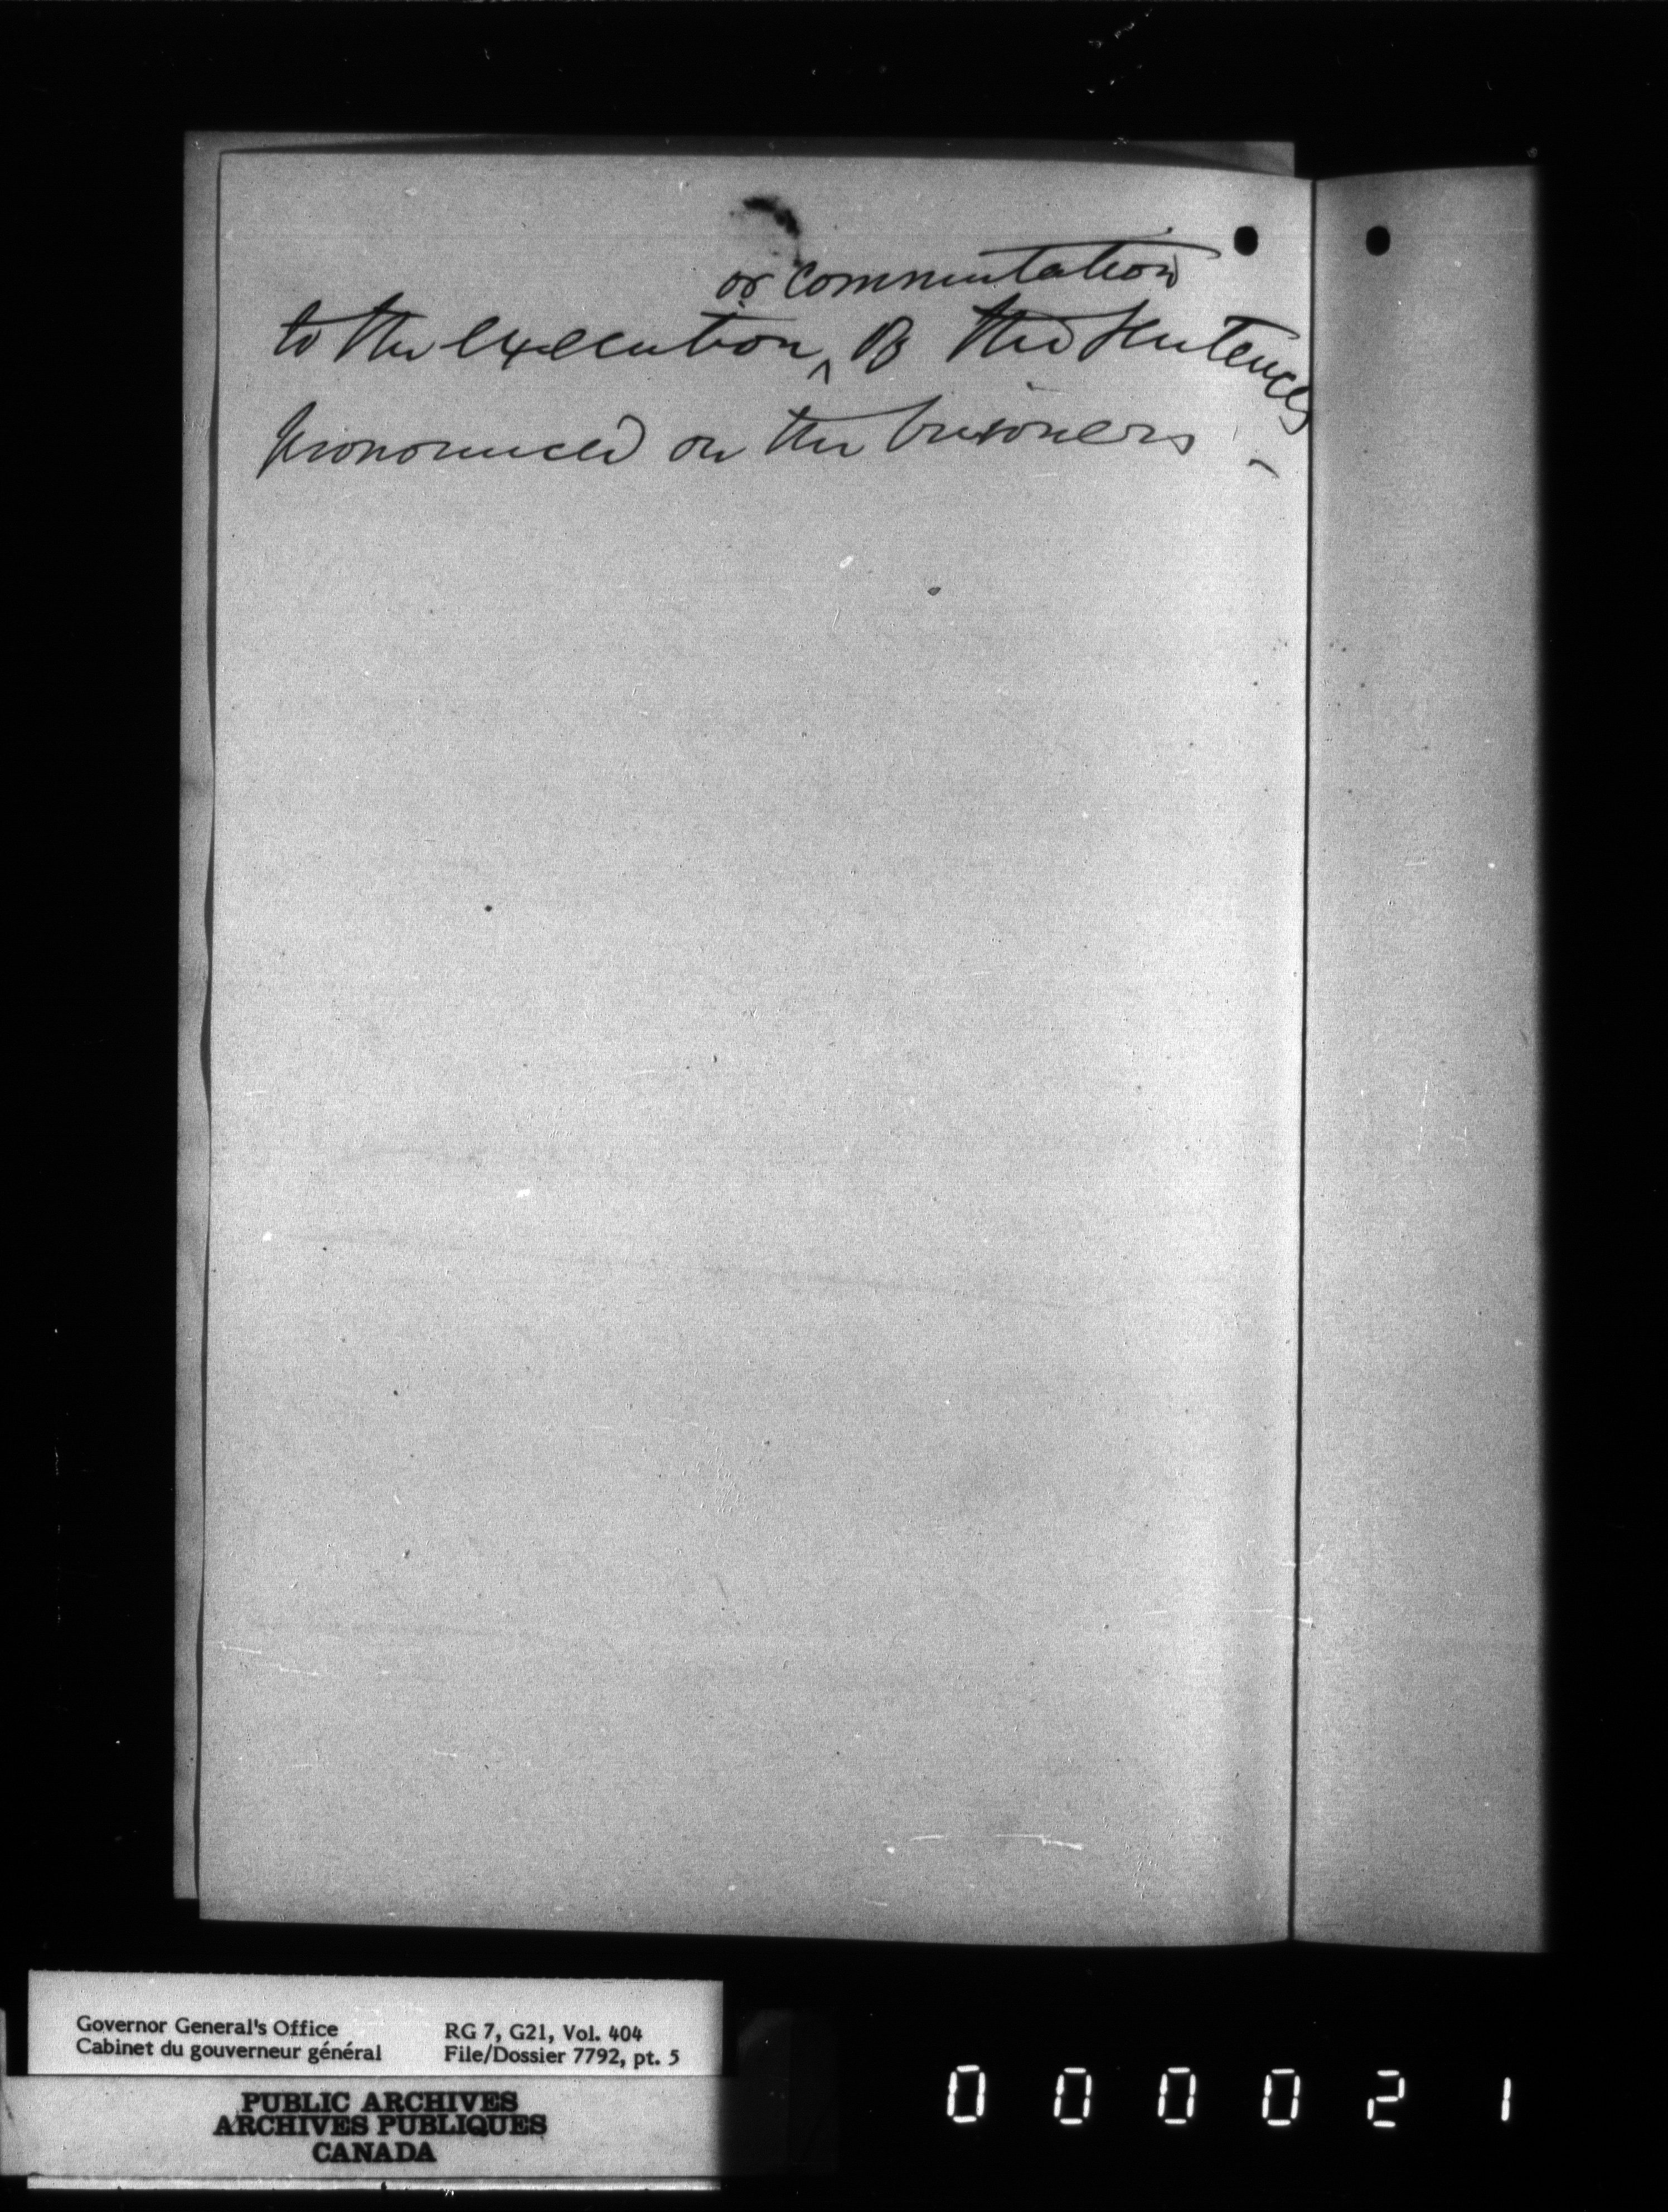 or commutation
to the execution ^ of the sentences
pronounced on the prisoners -
Governor General's Office
Cabinet du gouverneur général
RG 7, G21, Vol. 404
File/Dossier 7792, pt. 5
PUBLIC ARCHIVES
ARCHIVES PUBLIQUES
CANADA
000021